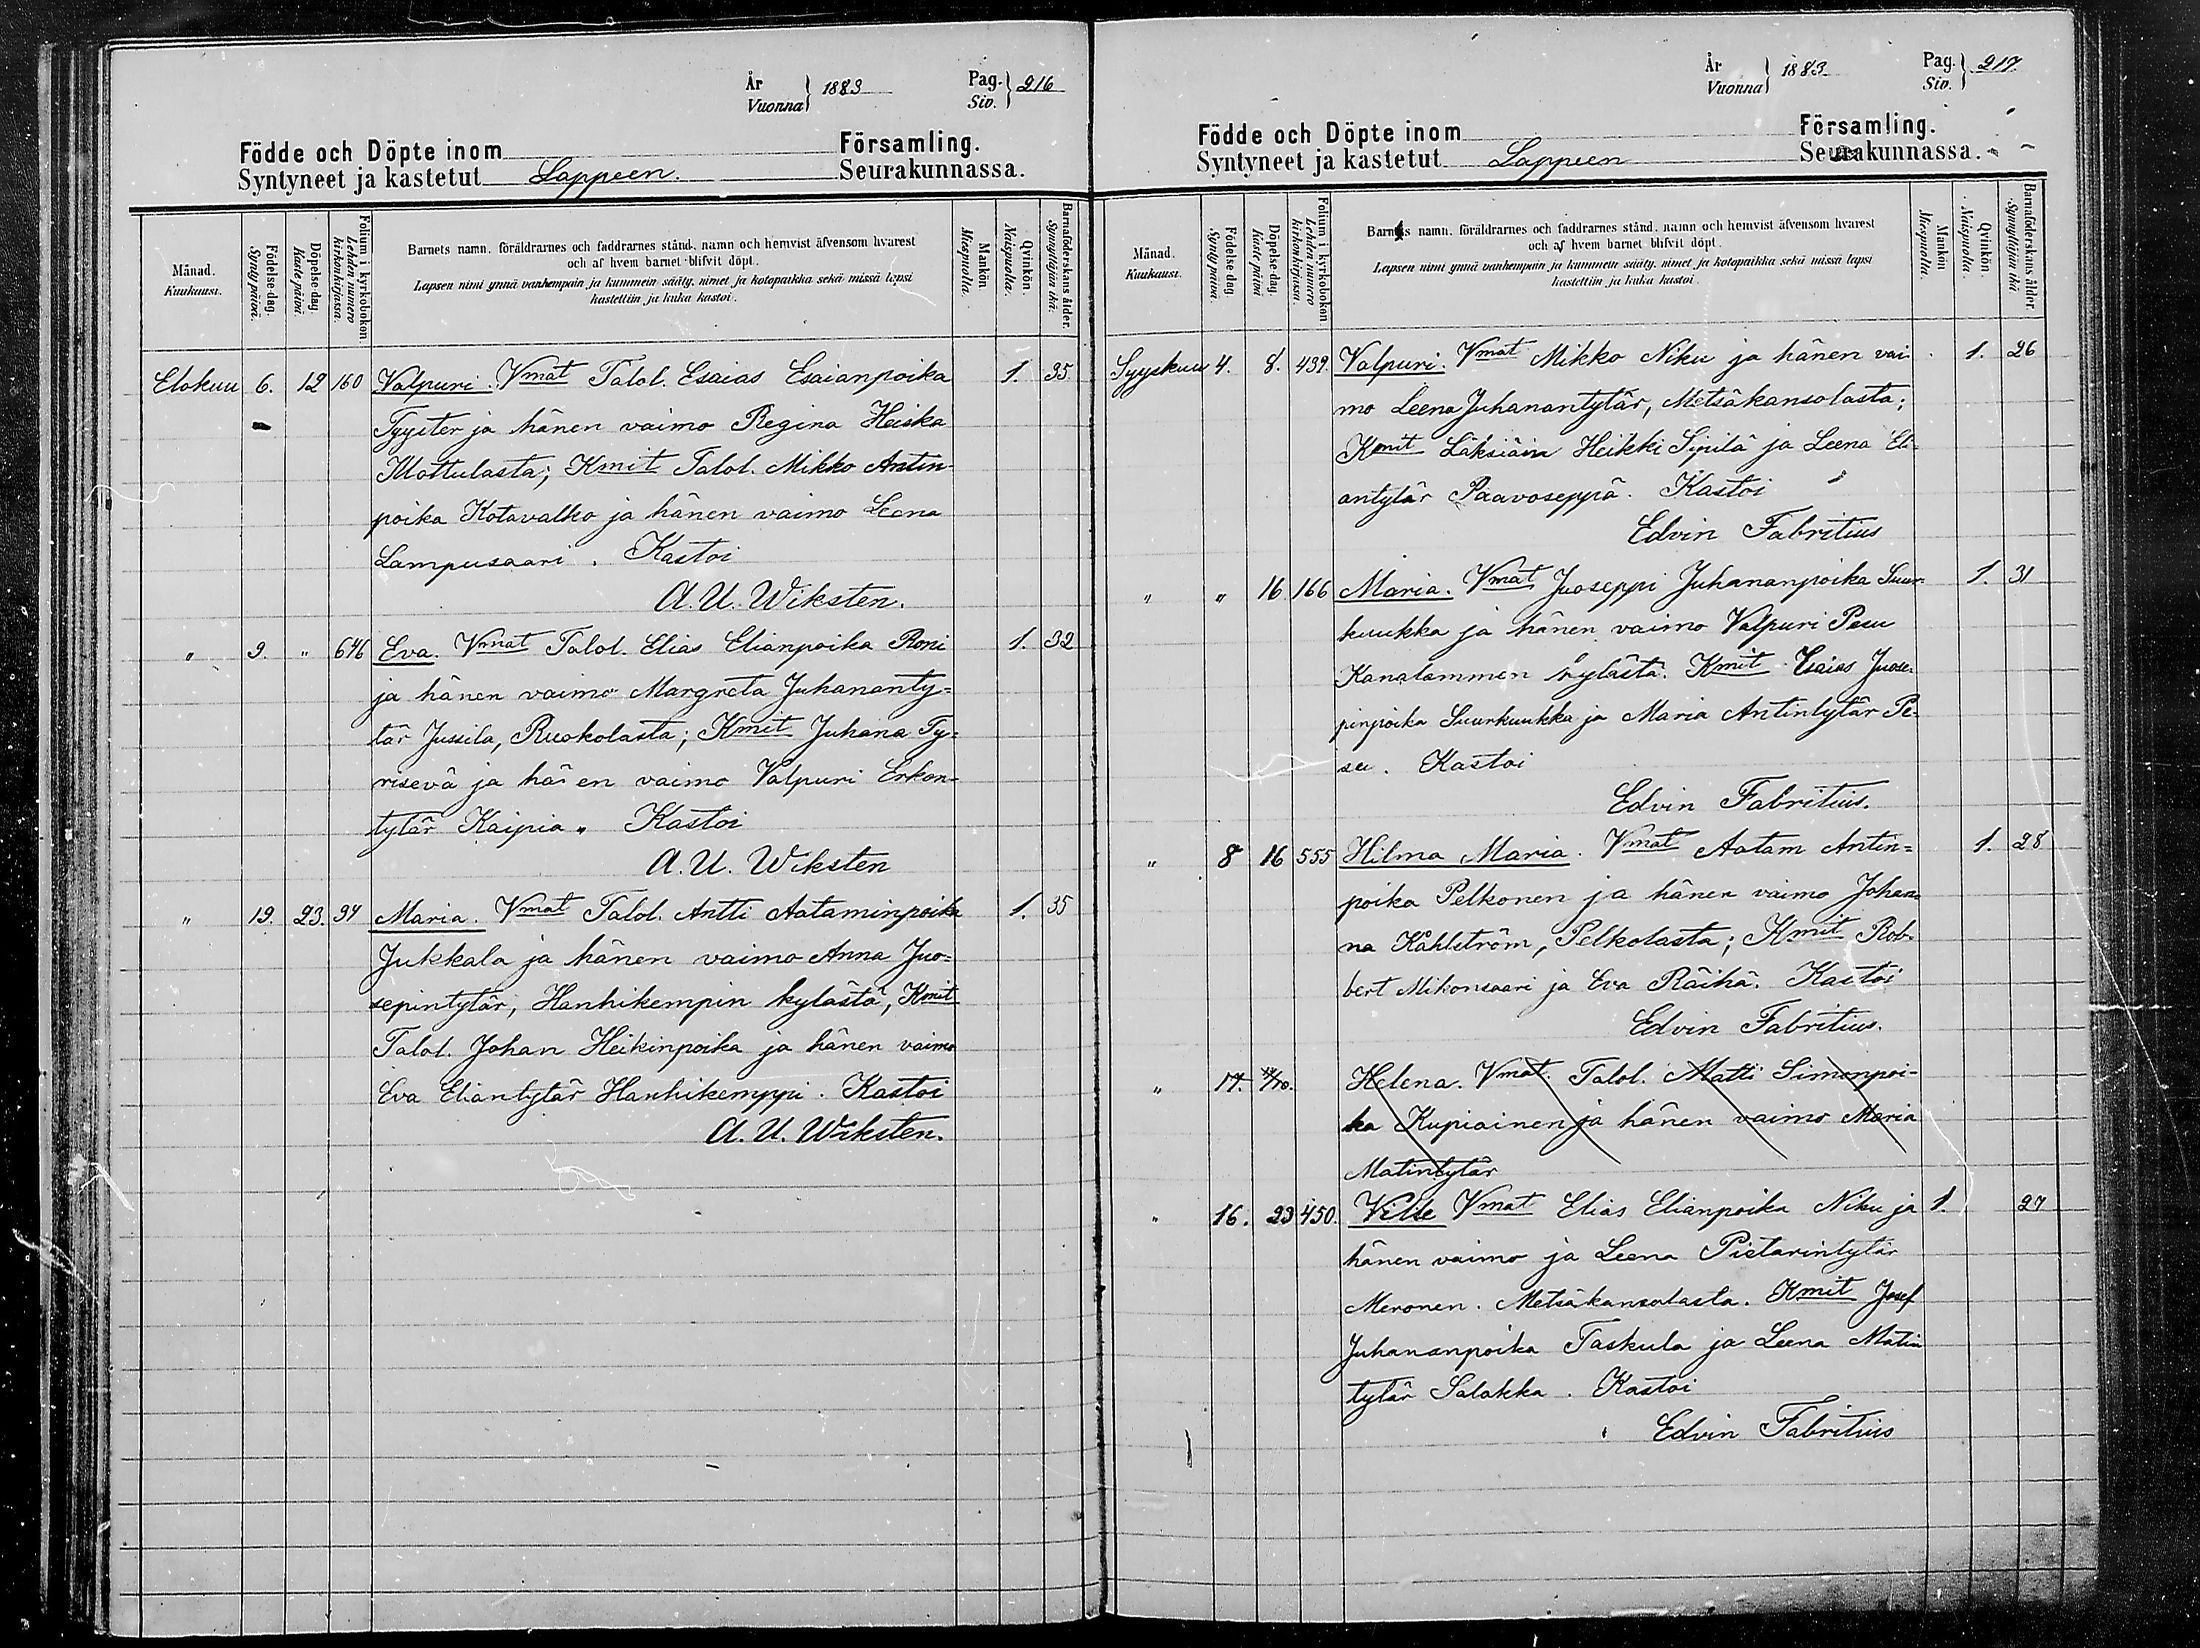 År
Vuonna } 1883 Pag. Siv. } 216
Födde och Döpte inom Församling.
Syntyneet ja kastetut Lappeen. Seurakunnassa.
Månad. Kuukausi.
Födelse dag. Synty päivä.
Döpelse dag. Kaste päivä.
Folium i kyrkobokon Lehden numero kirkonkirjassa.
Barnets namn, föräldrarnes och faddrarnes stånd, namn och hemvist äfvensom hvarest
och af hvem barnet blifvit döpt.
Lapsen nimi ynnä vanhempain ja kummein sääty, nimet ja kotopaikka sekä missä lapsi
kastettiin ja kuka kastoi.
Mankön. Miespuolia.
Qvinkön. Naispuolia.
Barnaföderskans ålder. Synnyttäjän ikä.
Elokuu 6. 12 160 Valpuri. Vmat Talol. Esaias Esaianpoika 1. 35.
Tyyster ja hänen vaimo Regina Heiska
Mattulasta; Kmit Talol. Mikko Antin-
poika Kotavalko ja hänen vaimo Leena
Lampusaari. Kastoi
A. U. Wiksten.
" 9. " 646 Eva. Vmat Talol. Elias Elianpoika Roni 1. 32
ja hänen vaimo Margreta Juhananty=
tär Jussila, Ruokolasta; Kmit Juhana Ty=
risevä ja hänen vaimo Valpuri Erkon=
tytär Kaipia. Kastoi
A. U. Wiksten
" 19. 23. 94 Maria. Vmat Talol. Antti Aataminpoika 1. 35
Jukkala ja hänen vaimo Anna Juo=
sepintytär, Hanhikempin kylästä, Kmit
Talol. Johan Heikinpoika ja hänen vaimo
Eva Eliantytär Hanhikemppi. Kastoi
A. U. Wiksten.
År
Vuonna } 1883 Pag. Siv. } 217
Födde och Döpte inom Församling.
Syntyneet ja kastetut Lappeen Seurakunnassa.
Månad. Kuukausi.
Födelse dag. Synty päivä.
Döpelse dag. Kaste päivä
Folium i kyrkobokon Lehden numero kirkonkirjassa.
Barnets namn, föräldrarnes och faddrarnes stånd, namn och hemvist äfvensom hvarest
och af hvem barnet blifvit döpt.
Lapsen nimi ynnä vanhempain ja kummein sääty, nimet ja kotopaikka sekä missä lapsi
kastettiin ja kuka kastoi.
Mankön Miespuolia
Qvinkön. Naispuolia.
Barnaföderskans ålder. Synnyttäjän ikä
Syyskuu 4. 8. 439. Valpuri. Vmat Mikko Niku ja hänen vai- 1. 26
mo Leena Juhanantytär, Metsäkansolasta;
Kmit Läksiäin Heikki Sipilä ja Leena Eli-
antytär Paavoseppä. Kastoi
Edvin Fabritius
" " 16 166 Maria. Vmat Juoseppi Juhananpoika Suur- 1. 31
kuukka ja hänen vaimo Valpuri Pesu
Kanalammen kylästä. Kmit Esaias Juose-
pinpoika Suurkuukka ja Maria Antintytär Pe-
su. Kastoi
Edvin Fabritius.
" 8 16 555 Hilma Maria. Vmat Aatam Antin= 1. 28
poika Pelkonen ja hänen vaimo Johan-
na Kahlström, Pelkolasta; Kmit Rob-
bert Mikonsaari ja Eva Räihä. Kastoi
Edvin Fabritius.
" 17. Helena. Vmat. Talol. Matti Simonpoi-
ka Kupiainen ja hänen vaimo Maria
Matintytär
" 16. 23 450. Ville Vmat Elias Elianpoika Niku ja 1. 27
hänen vaimo ja Leena Pietarintytär
Meronen. Metsäkansolasta. Kmit Josef
Juhananpoika Taskula ja Leena Matin
tytär Salakka. Kastoi
Edvin Fabritius